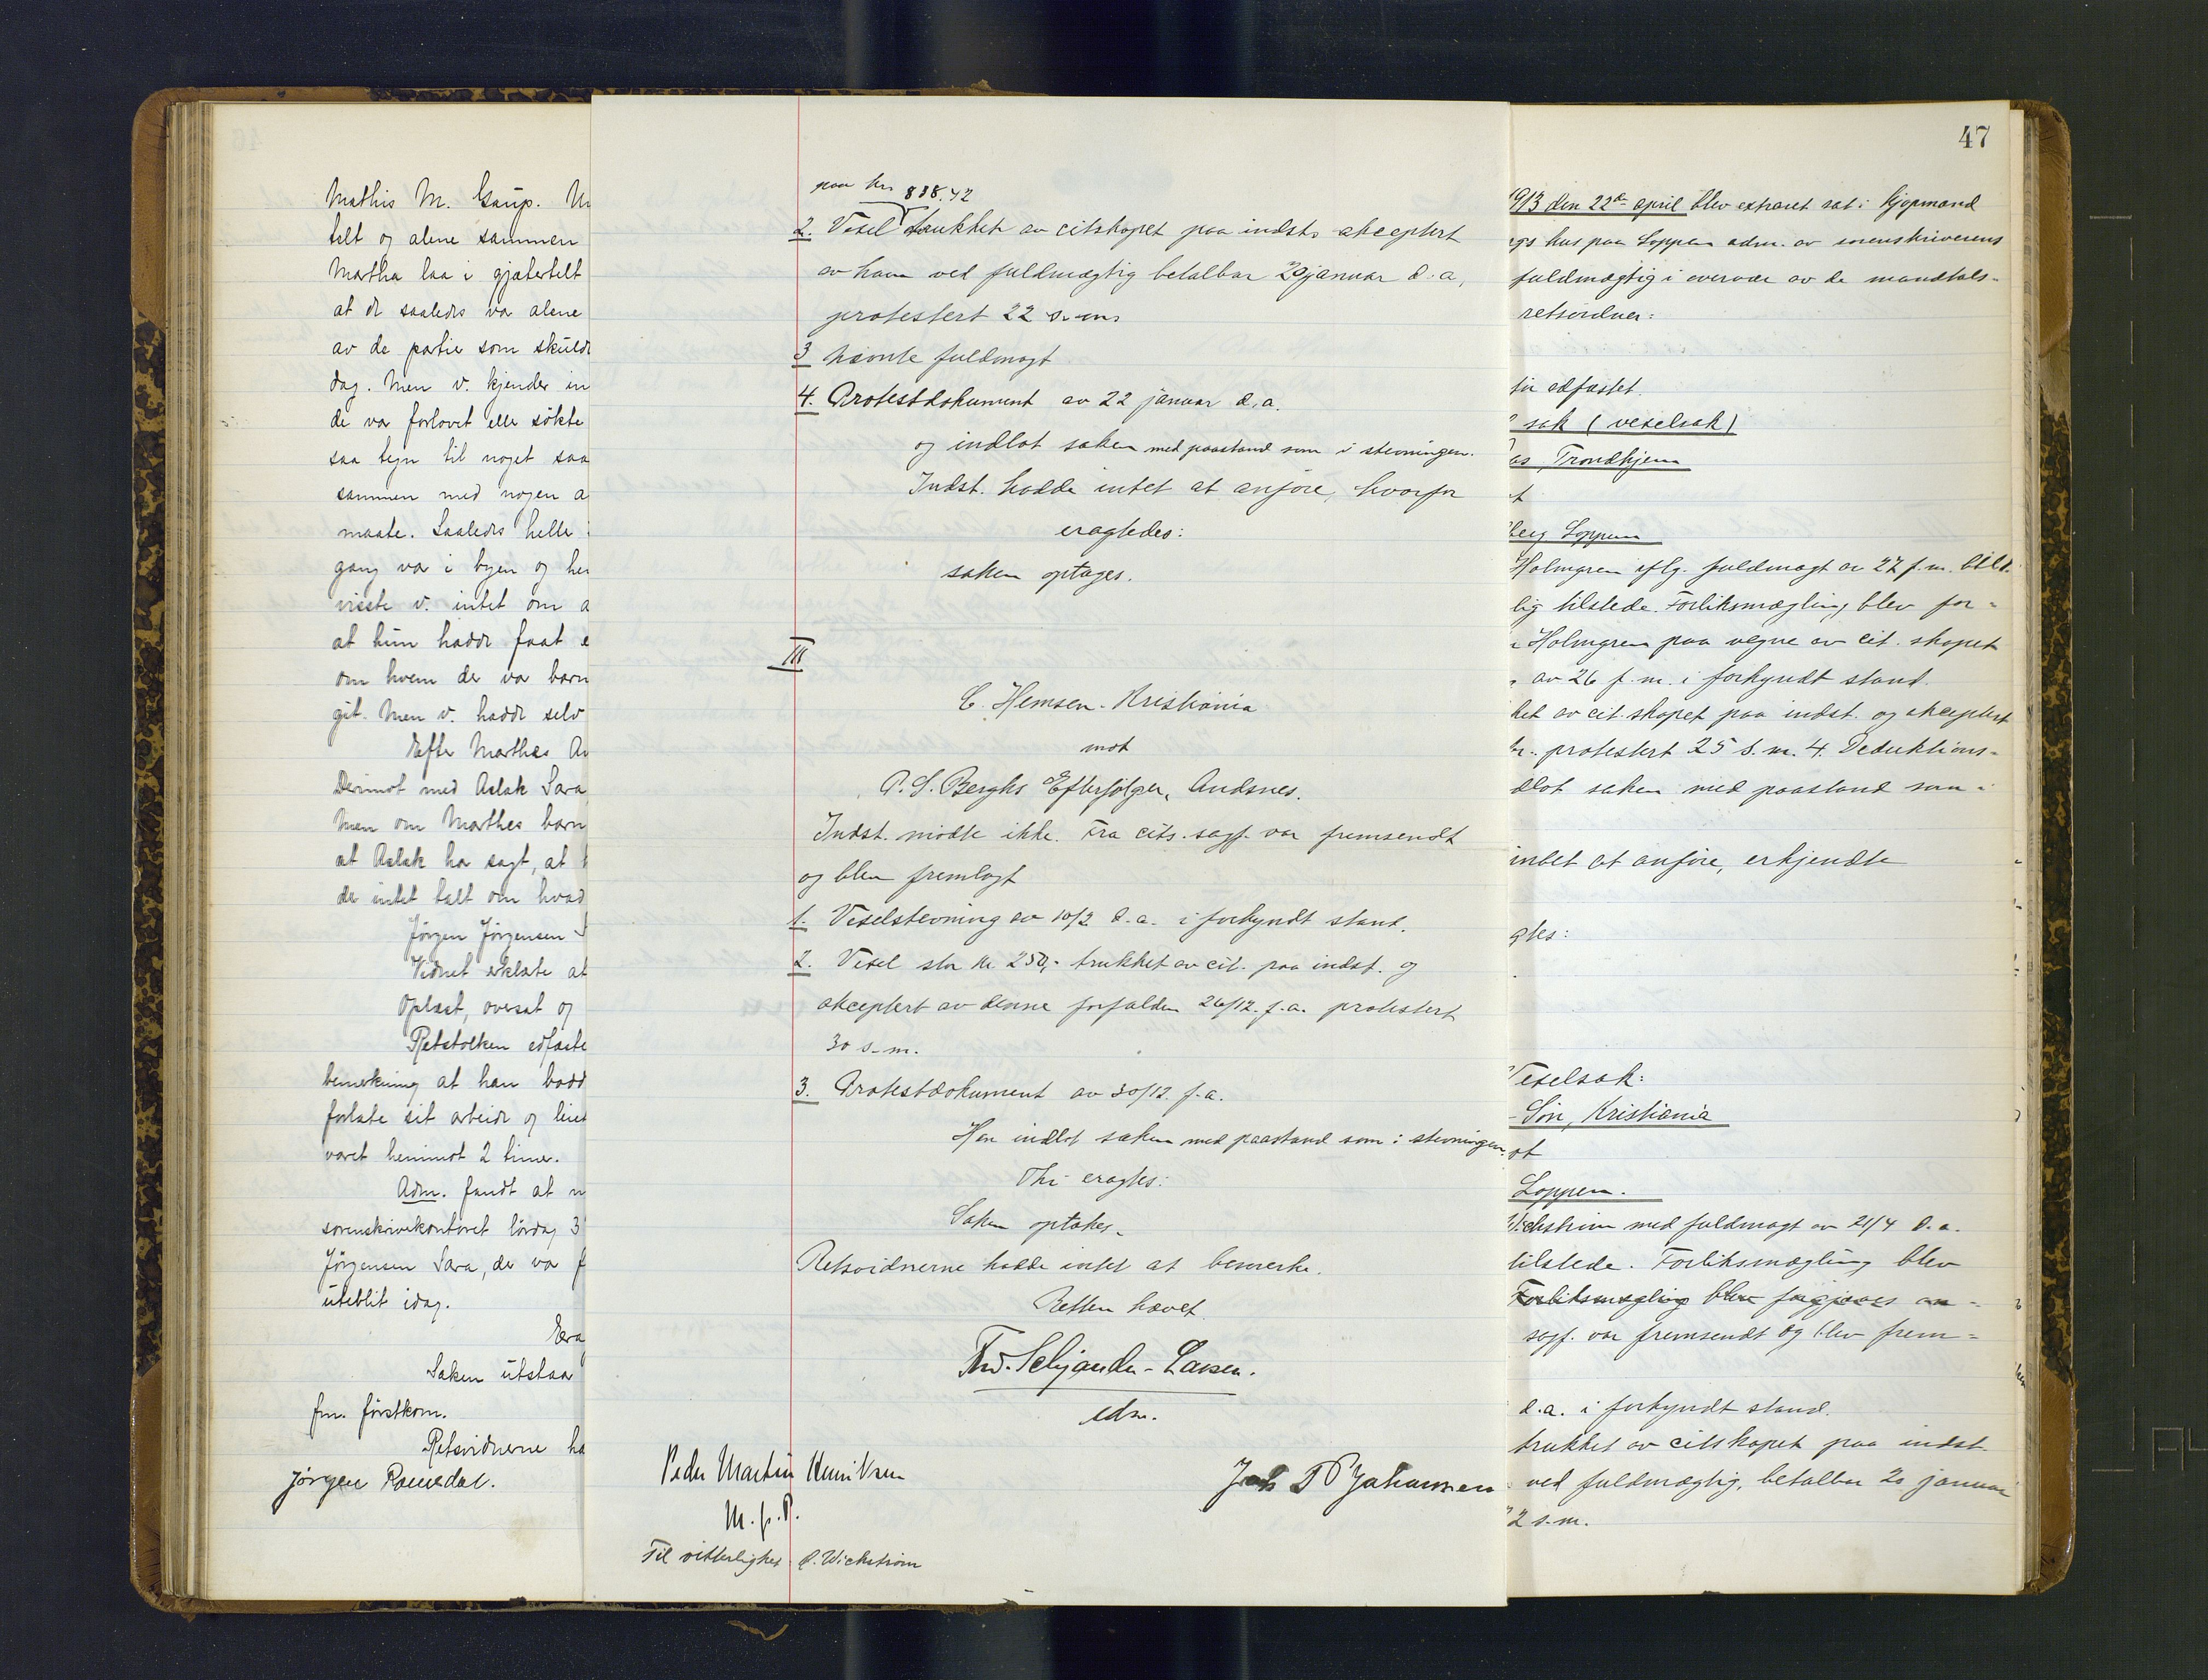 Mathis M. Gaup.
telt og alene sammen
Martha laa i gjætertelt
at de saaledes var alene
av de partier som skulde
dag. Men v. kjender in
de var forlovet eller søkte
saa tegn til noget saa
sammen med nogen a
maate. Saaledes heller
gang var i byen og her
visste v. intet om a
at hun hadde faat e
om hvem der var barn
git. Men v. hadde selv
Efter Marthes An
Derimot med Aslak Sara
Men om Marthes barn
at Aslak har sagt, at
der intet talt om hvad
Jørgen Jørgensen S
Vidnet erklærte at
Oplæst, oversat og
Retstolken edfæste
bemerkning at han hadd
forlate sit arbeide og leiet
varet henimot 2 timer.
Adm. fandt at
sorenskriverkontoret lørdag 3
Jørgensen Sara, der var f
uteblit idag.
Era
Saken utstaar
fm. førstkom.
Retsvidnerne ha
Jørgen Romsdal.
paa kr. 838.42
2. Vexel trukket av citskapet paa indst. akceptert
av ham ved fuldmægtig betalbar 20 januar d.a,
protestert 22 s.m.
3 nævnte fuldmagt
4. Protestdokument av 22 januar d.a.
og indlot saken med paastand som i stevningen.
Indst. hadde intet at anføre, hvorfor
eragtedes:
saken optages.
III
C. Hemsen - Kristiania
mot
P. S. Berghs Efterfølger, Andsnes.
Indst. møtte ikke. Fra cits. sagf. var fremsendt
og blev fremlagt
1. Vexelstevning av 10/2 d.a. i forkyndt stand.
2. Vexel stor kr. 250,- trukket av cit. paa indst. og
akceptert av denne forfalden 26/12. f.a. protestert
30 s.m.
3. Protestdokument av 30/12. f.a.
Han indlot saken med paastand som i stevningen.
Thi eragtes:
Saken optakes.
Retsvidnerne hadde intet at bemerke.
Retten hævet.
Thv. Schjander-Larsen.
adm.
Peder Martin Henriksen
M. f. P.
Til vitterlighet C. Wickstrøm
Joh P Johansen
47
1913 den 22de april blev extraret sat i kjøpmand
gs hus paa Loppen adm. av sorenskriverens
fuldmægtig i overvær av de mandtals-
retsvidner:
edfæstet.
sak (vexelsak)
as, Trondhjem
t
berg Loppen
Holmgren iflg. fuldmagt av 27 f.m.
lig tilstede. Forliksmægling blev for-
Holmgren paa vegne av cit. skapet
av 26 f.m. i forkyndt stand.
ket av cit. skapet paa indst. og akceptert
protestert 25 s.m. 4. Deduktions-
dlot saken med paastand som i
intet at anføre, erkjendte
gtes:
Vexelsak:
Søn, Kristiania
ot
Loppen.
Wickstrøm med fuldmagt av 21/4 d.a.
tilstede. Forliksmægling blev
Forliksmægling blev forgjæves an-
sagf. var fremsendt og blev frem-
d.a. i forkyndt stand.
trukket av citskapet paa indst.
ved fuldmægtig, betalbar 20 januar
22 s.m.